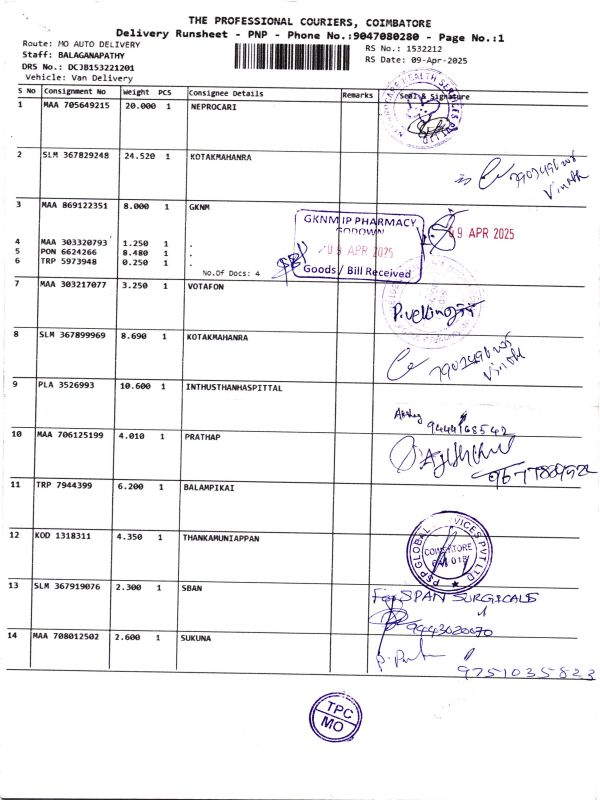 THE PROFESSIONAL COURIERS, COIMBATORE
Delivery Runsheet - PNP - Phone No.:9047080280 - Page No.:1
Route: MO AUTO DELIVERY
RS No.: 1532212
Staff: BALAGANAPATHY
RS Date: 09-Apr-2025
DRS No.: DCJB153221201
Vehicle: Van Delivery
S No Consignment No Weight PCS Consignee Details Remarks Seal & Signature
1 MAA 705649215 20.000 1 NEPROCARI
2 SLM 367829248 24.520 1 KOTAKMAHANRA
Vinoth
3 MAA 869122351 8.000 1 GKNM
GKNM IP PHARMACY
GODOWN
09 APR 2025
09 APR 2025
Goods / Bill Received
4 MAA 303320793 1.250 1 .
5 PON 6624266 8.480 1 .
6 TRP 5973948 0.250 1 .
No.Of Docs: 4
7 MAA 303217077 3.250 1 VOTAFON
8 SLM 367899969 8.690 1 KOTAKMAHANRA
Vinoth
9 PLA 3526993 10.600 1 INTHUSTHANHASPITTAL
10 MAA 706125199 4.010 1 PRATHAP
11 TRP 7944399 6.200 1 BALAMPIKAI
12 KOD 1318311 4.350 1 THANKAMUNIAPPAN
PSP GLOBAL SERVICES PVT LTD
COIMBATORE
13 SLM 367919076 2.300 1 SBAN
For SPAN SURGICALS
14 MAA 708012502 2.600 1 SUKUNA
9751035823
TPC
MO